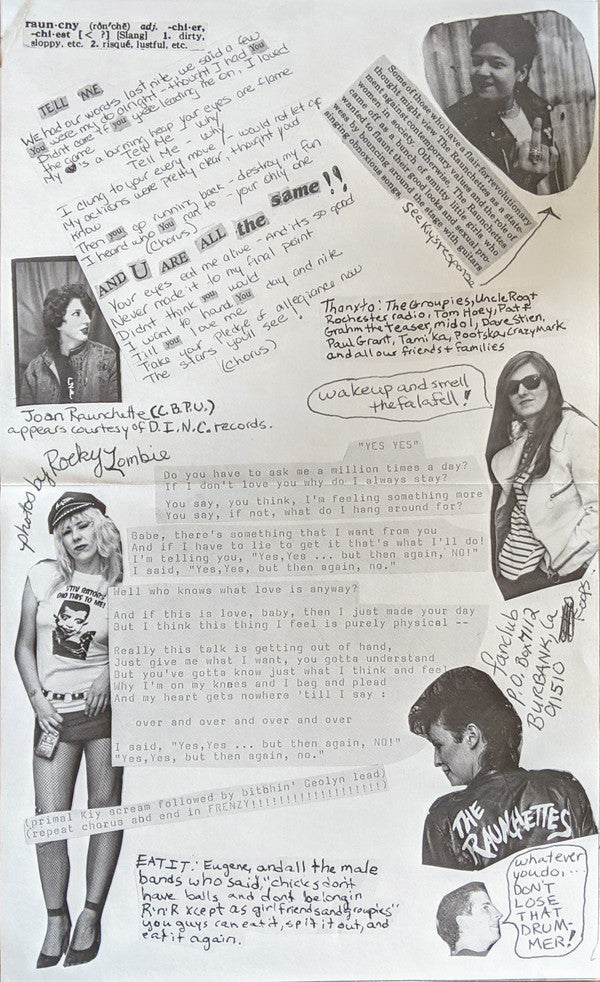 raun·chy (rôn'chē) adj. -chi·er,
-chi·est [< ?] [Slang] 1. dirty,
sloppy, etc. 2. risqué, lustful, etc.
TELL ME
We had our words last nite, we said a few
You were my do alright - thought I had You
Didn't care if you were leading me on, I loved
the game
My is a burning heap your eyes are flame
Tell Me - why
Tell Me - why
I clung to your every move I would not let go
My actions were pretty clear, thought you'd
know
Then you go running back - destroy my fun
I heard who You ran to - your only one
(Chorus)
AND U ARE ALL the same!!
Your eyes eat me alive - And its so good
Never made it to my final point
Didn't think you would
I want to hand You day and nite
Till you love me
Take your pledge of allegiance now
The stars you'll see!
(chorus)
Some of those who have a flair for revolutionary
thought might view The Raunchettes as a state-
ment against contemporary values and the role of
women in society. Otherwise, The Raunchettes
came off as a bunch of snautty little girls who
wanted to flaunt their good looks and sexual pro-
wess by bouncing around the stage with guitars
singing obnoxious songs.
See Kiy's response
Thanx to: The Groupies, Uncle Rogt
Rochester radio, Tom Hoey, Pat F
Grahm the teaser, midol, Dave Stien,
Paul Grant, Tamika, Pootsky, Crazy Mark
and all our friends + families
Joan Raunchette (C.B.P.U.)
appears courtesy of D.I.N.C. records.
wake up and smell
the falafell!
photos by Rocky Zombie
"YES YES"
Do you have to ask me a million times a day?
If I don't love you why do I always stay?
You say, you think, I'm feeling something more
You say, if not, what do I hang around for?
Babe, there's something that I want from you
And if I have to lie to get it that's what I'll do!
I'm telling you, "Yes,Yes ... but then again, NO!"
I said, "Yes,Yes, but then again, no."
Well who knows what love is anyway?
And if this is love, baby, then I just made your day
But I think this thing I feel is purely physical --
Really this talk is getting out of hand,
Just give me what I want, you gotta understand
But you've gotta know just what I think and feel
Why I'm on my knees and I beg and plead
And my heart gets nowhere 'till I say :
over and over and over and over
I said, "Yes,Yes ... but then again, NO!"
"Yes,Yes, but then again, no."
(primal Kiy scream followed by bitbhin' Geolyn lead)
(repeat chorus abd end in FRENZY!!!!!!!!!!!!!!!!!!!!)
fanclub
P.O. Box 7112
BURBANK, Ca
91510
THE
RAUNCHETTES
EAT IT: Eugene, and all the male
bands who said, "chicks don't
have balls and dont belong in
R'n'R xcept as girlfriends and groupies"
you guys can eat it, spit it out, and
eat it again.
whatever
you do,...
DON'T
LOSE
THAT
DRUM-
MER!